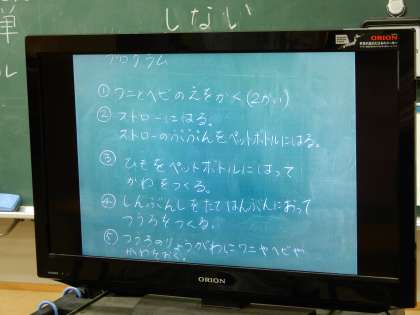 しない
単
ル
ORION
プログラム
① ワニとヘビのえをかく(2かい)
② ストローにはる。
ストローのぶぶんをペットボトルにはる。
③ ひもをペットボトルにはって
かわをつくる。
④ しんぶんしをたてはんぶんにおって
つうろをつくる。
⑤ つうろのりょうがわにワニやヘビや
かわをおく。
ORION